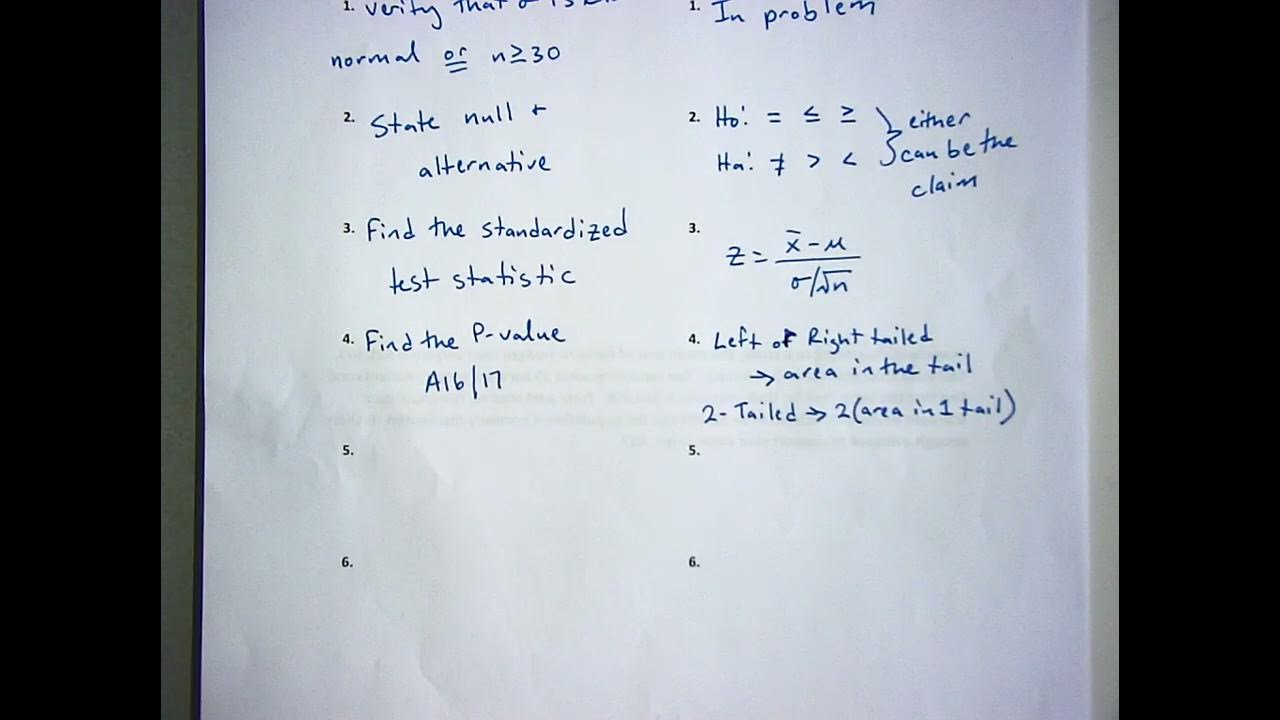 1. verify that σ is
normal or n≥30
1. In problem
2. State null +
alternative
2. Ho: = ≤ ≥ } either
Ha: ≠ > < can be the
claim
3. Find the standardized
test statistic
3. z = x̄-μ
σ/√n
4. Find the P-value
A16/17
4. Left or Right tailed
→ area in the tail
2-Tailed → 2(area in 1 tail)
5.
5.
6.
6.